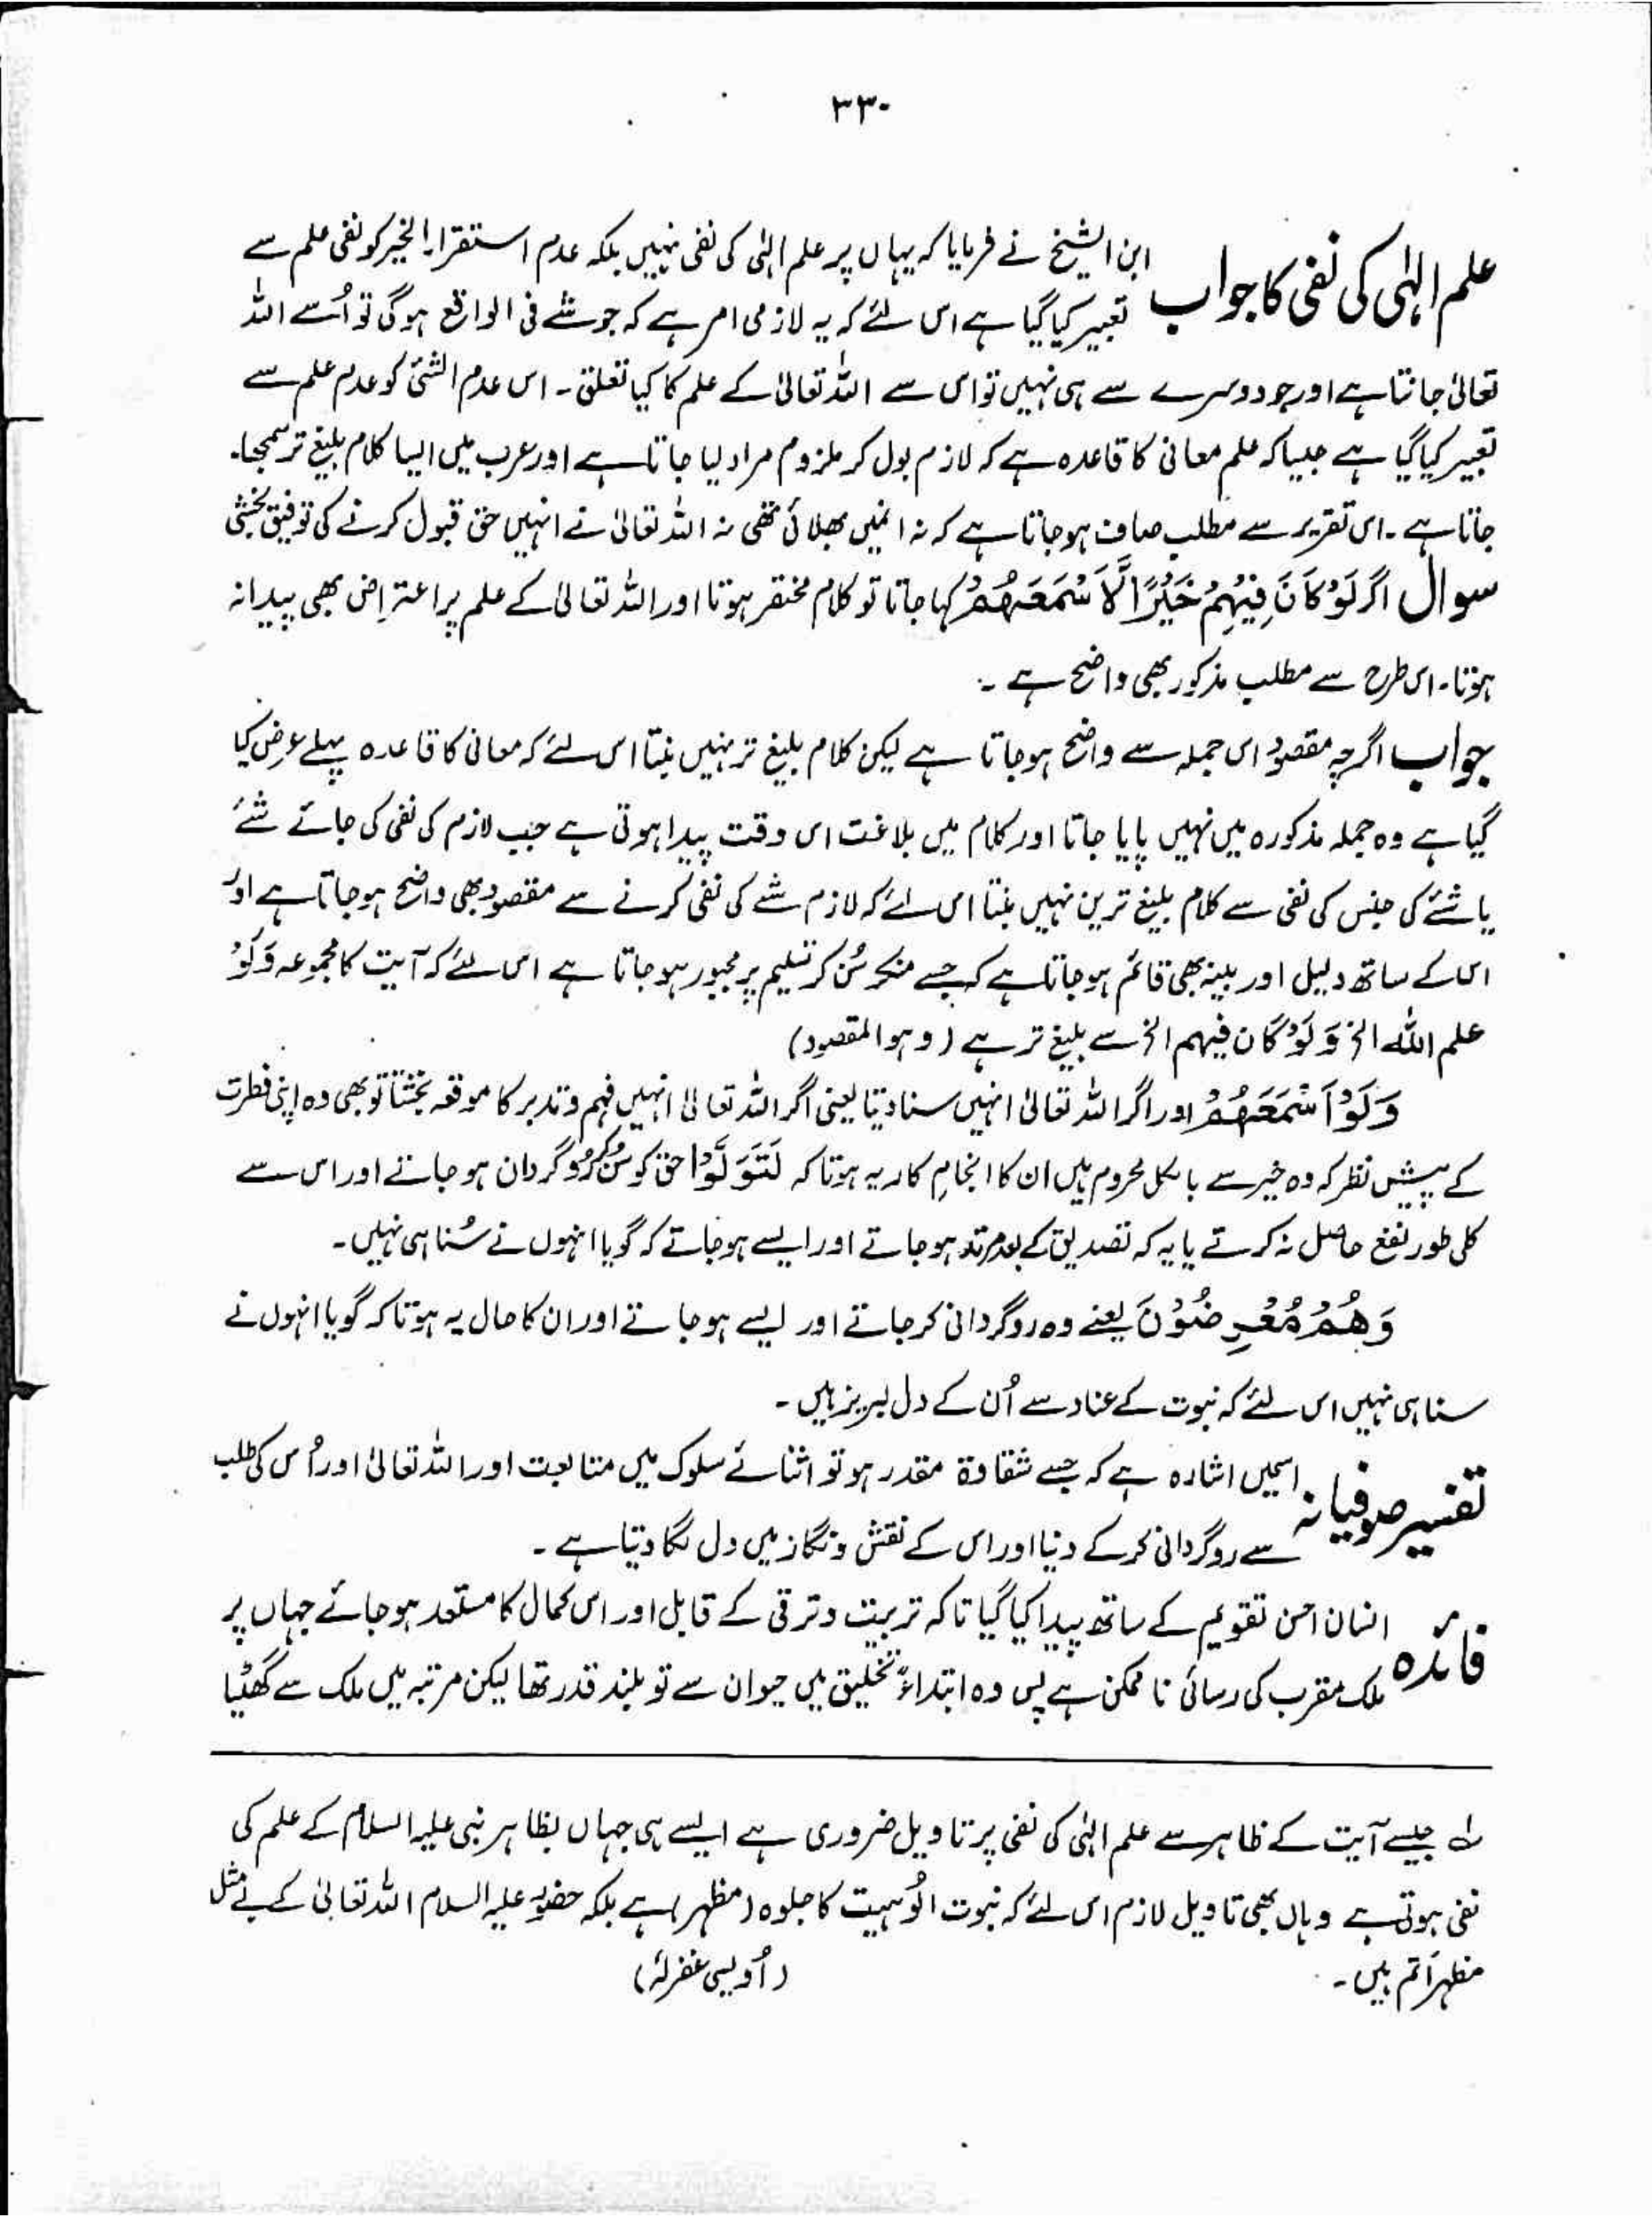 ۳۳۰
علم الہٰی کی نفی کا جواب ابن الشیخ نے فرمایا کہ یہاں پر علم الہٰی کی نفی نہیں بلکہ عدم استقرار الخیر کو نفی علم سے
تعبیر کیا گیا ہے اس لئے کہ یہ لازمی امر ہے کہ جو شئے فی الواقع ہوگی تو اُسے اللہ
تعالیٰ جانتا ہے اور جو دوسرے سے ہی نہیں تو اس سے اللہ تعالیٰ کے علم کا کیا تعلق۔ اس عدم الشئ کو عدم علم سے
تعبیر کیا گیا ہے جیسا کہ علم معانی کا قاعدہ ہے کہ لازم بول کر ملزوم مراد لیا جاتا ہے اور عرب میں ایسا کلام بلیغ تر سمجھا۔
جاتا ہے۔ اس تقریر سے مطلب صاف ہو جاتا ہے کہ نہ انمیں بھلائی تھی نہ اللہ تعالیٰ نے انہیں حق قبول کرنے کی توفیق بخشی
سوال اگر لَوْ کَانَ فِیْہِمْ خَیْرًا لَّاَسْمَعَھُمْ کہا جاتا تو کلام مختصر ہوتا اور اللہ تعالیٰ کے علم پر اعتراض بھی پیدا نہ
ہوتا۔ اس طرح سے مطلب مذکور بھی واضح ہے ۔
جواب اگرچہ مقصود اس جملہ سے واضح ہو جاتا ہے لیکن کلام بلیغ تر نہیں بنتا اس لئے کہ معانی کا قاعدہ پہلے عرض کیا
گیا ہے وہ جملہ مذکورہ میں نہیں پایا جاتا اور کلام میں بلاغت اس وقت پیدا ہوتی ہے جب لازم کی نفی کی جائے شئے
یا شئے کی جنس کی نفی سے کلام بلیغ ترین نہیں بنتا اس لئے کہ لازم شے کی نفی کرنے سے مقصود بھی واضح ہو جاتا ہے اور
اس کے ساتھ دلیل اور بینہ بھی قائم ہو جاتا ہے کہ جسے منکر سُن کر تسلیم پر مجبور ہو جاتا ہے اس لئے کہ آیت کا مجموعہ وَلَوْ
علم اللہ الخ وَ لَوْ کَان فیہم الخ سے بلیغ تر ہے (وہو المقصود)
وَلَوْ اَسْمَعَھُمْ اور اگر اللہ تعالیٰ انہیں سنا دیتا یعنی اگر اللہ تعالیٰ انہیں فہم و تدبر کا موقعہ بخشتا تو بھی وہ اپنی فطرت
کے پیشِ نظر کہ وہ خیر سے بالکل محروم ہیں ان کا انجامِ کار یہ ہوتا کہ لَتَوَلَّوْا حق کو سُن کر رُوگردان ہو جاتے اور اس سے
کلی طور نفع حاصل نہ کرتے یا یہ کہ تصدیق کے بعد مرتد ہو جاتے اور ایسے ہو جاتے کہ گویا انہوں نے سُنا ہی نہیں۔
وَھُمْ مُّعْرِضُوْنَ یعنے وہ روگردانی کر جاتے اور ایسے ہو جاتے اور ان کا حال یہ ہوتا کہ گویا انہوں نے
سنا ہی نہیں اس لئے کہ نبوت کے عناد سے اُن کے دل لبریز ہیں۔
تفسیر صوفیانہ اسمیں اشارہ ہے کہ جسے شقاوۃ مقدر ہو تو اثنائے سلوک میں متابعت اور اللہ تعالیٰ اور اُس کی طلب
سے روگردانی کرکے دنیا اور اس کے نقش و نگار میں دل لگا دیتا ہے ۔
فائدہ انسان احسن تقویم کے ساتھ پیدا کیا گیا تاکہ تربیت و ترقی کے قابل اور اس کمال کا مستعد ہو جائے جہاں پر
ملک مقرب کی رسائی ناممکن ہے پس وہ ابتداءً تخلیق میں حیوان سے تو بلند قدر تھا لیکن مرتبہ میں ملک سے گھٹیا
لہ جیسے آیت کے ظاہر سے علم الہٰی کی نفی پر تاویل ضروری ہے ایسے ہی جہاں بظاہر نبی علیہ السلام کے علم کی
نفی ہوتی ہے وہاں بھی تاویل لازم اس لئے کہ نبوت الُوہیت کا جلوہ (مظہر) ہے بلکہ حضور علیہ السلام اللہ تعالیٰ کے بے مثل
مظہر اَتم ہیں۔ (اُویسی غفرلہٗ)